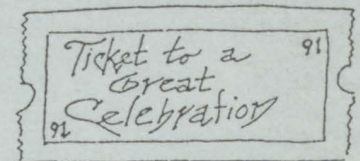 Ticket to a 91
Great
Celebration
91